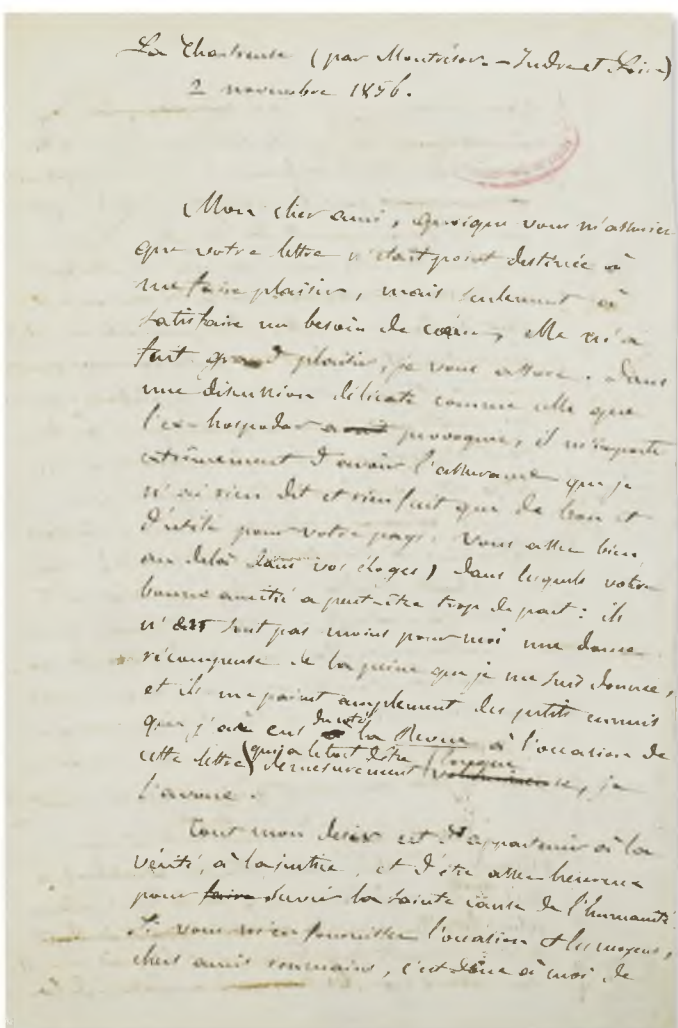 La Chartreuse (par Montrésor - Indre et Loire)
2 novembre 1856.
Mon cher ami, quoique vous m'assuriez
que votre lettre n'était point destinée à
me faire plaisir, mais seulement à
satisfaire un besoin de cœur, elle m'a
fait grand plaisir, je vous assure. Dans
une discussion délicate comme celle que
l'ex-hospodar avait provoquée, il m'importe
extrêmement d'avoir l'assurance que je
n'ai rien dit et rien fait que de bon et
d'utile pour votre pays. Vous allez bien
au delà dans vos éloges, dans lesquels votre
bonne amitié a peut-être trop de part : ils
n'en sont pas moins pour moi une douce
récompense de la peine que je me suis donnée,
et ils me paient amplement des petits ennuis
que j'ai eus du côté de la Revue à l'occasion de
cette lettre qui a le tort d'être démesurément longue, je
l'avoue.
Tout mon désir est d'appartenir à la
vérité, à la justice, et d'être assez heureux
pour faire servir la sainte cause de l'humanité.
Si vous m'en fournissez l'occasion et les moyens,
chers amis roumains, c'est donc à moi de